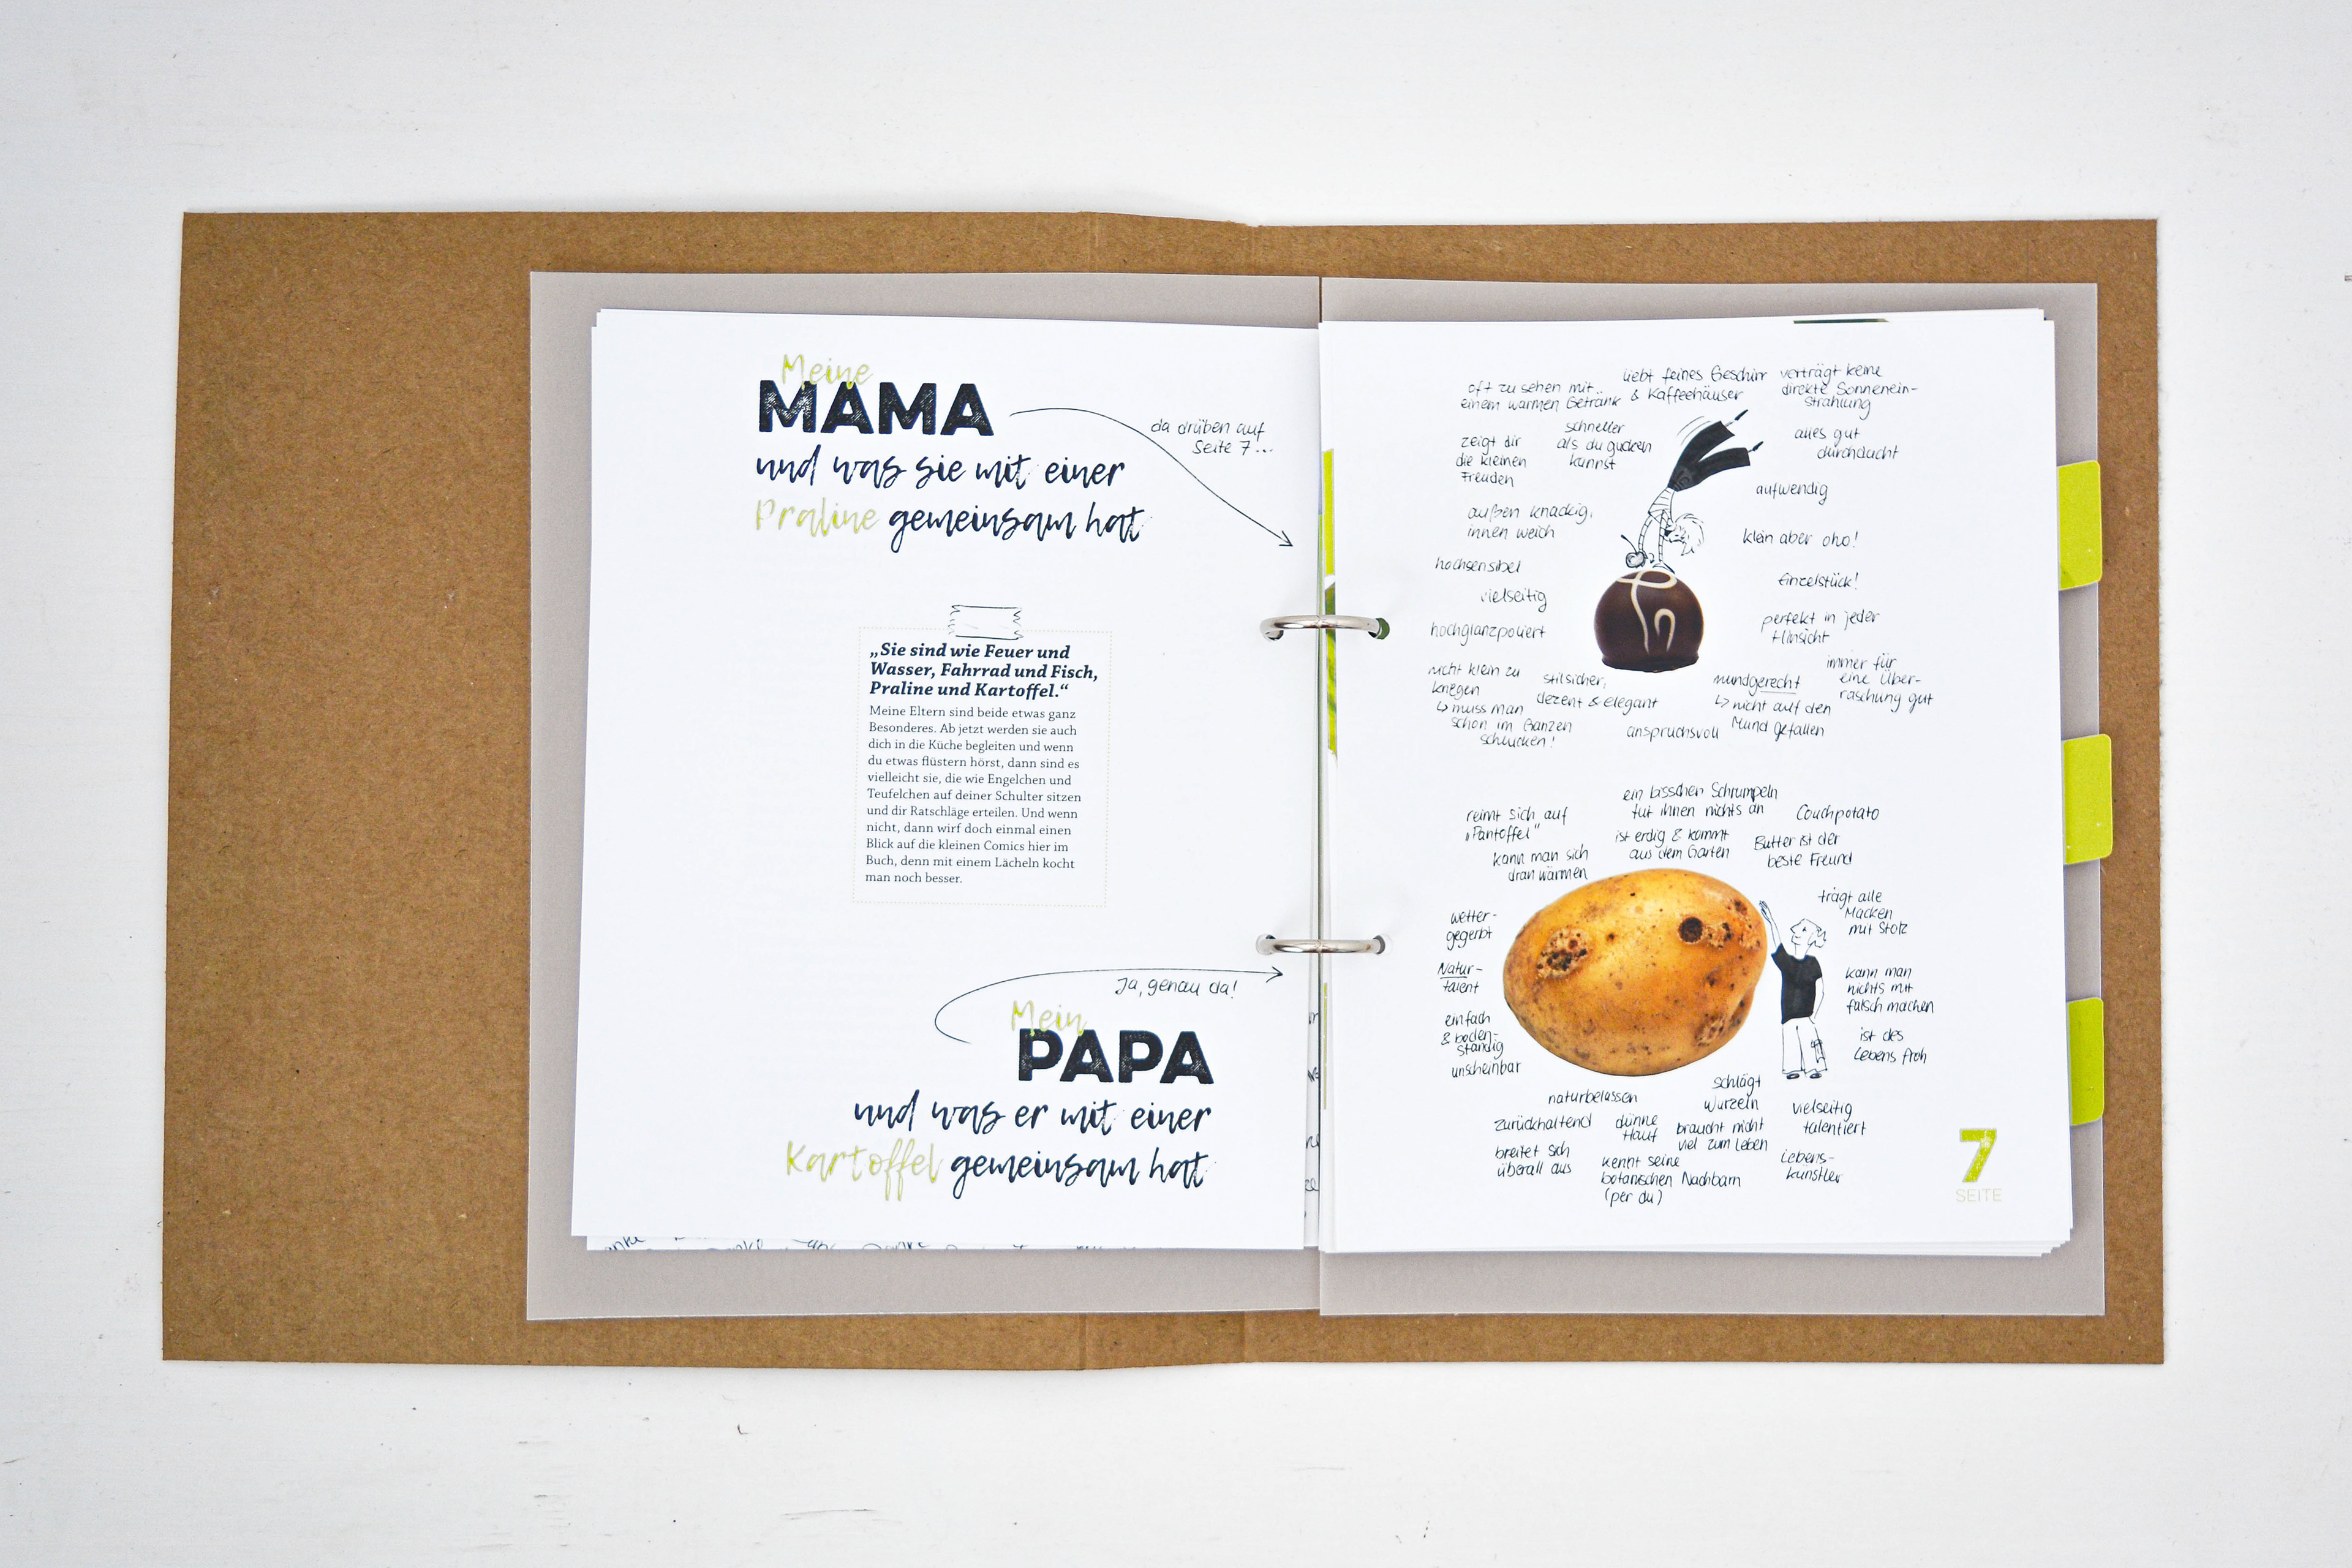 Meine
MAMA
und was sie mit einer
Praline gemeinsam hat
da drüben auf
Seite 7...
„Sie sind wie Feuer und
Wasser, Fahrrad und Fisch,
Praline und Kartoffel.“
Meine Eltern sind beide etwas ganz
Besonderes. Ab jetzt werden sie auch
dich in die Küche begleiten und wenn
du etwas flüstern hörst, dann sind es
vielleicht sie, die wie Engelchen und
Teufelchen auf deiner Schulter sitzen
und dir Ratschläge erteilen. Und wenn
nicht, dann wirf doch einmal einen
Blick auf die kleinen Comics hier im
Buch, denn mit einem Lächeln kocht
man noch besser.
Ja, genau da!
Mein
PAPA
und was er mit einer
Kartoffel gemeinsam hat
oft zu sehen mit
einem warmen Getränk
liebt feines Geschirr
& Kaffeehäuser
verträgt keine
direkte Sonnenein-
strahlung
zeigt dir
die kleinen
Freuden
schneller
als du gucken
kannst
alles gut
durchdacht
aufwendig
außen knackig,
innen weich
klein aber oho!
hochsensibel
Einzelstück!
vielseitig
hochglanzpoliert
perfekt in jeder
Hinsicht
nicht klein zu
kriegen
↳ muss man
schon im Ganzen
schlucken!
stilsicher,
dezent & elegant
anspruchsvoll
mundgerecht
↳ nicht auf den
Mund gefallen
immer für
eine Über-
raschung gut
reimt sich auf
„Pantoffel“
ein bisschen Schrumpeln
tut ihnen nichts an
Couchpotato
kann man sich
dran wärmen
ist erdig & kommt
aus dem Garten
Butter ist der
beste Freund
trägt alle
Macken
mit Stolz
wetter-
gegerbt
Natur-
talent
kann man
nichts mit
falsch machen
einfach
& boden-
ständig
unscheinbar
ist des
Lebens froh
naturbelassen
schlägt
Wurzeln
zurückhaltend
dünne
Haut
braucht nicht
viel zum Leben
vielseitig
talentiert
breitet sich
überall aus
kennt seine
botanischen Nachbarn
(per du)
Lebens-
künstler
7
SEITE